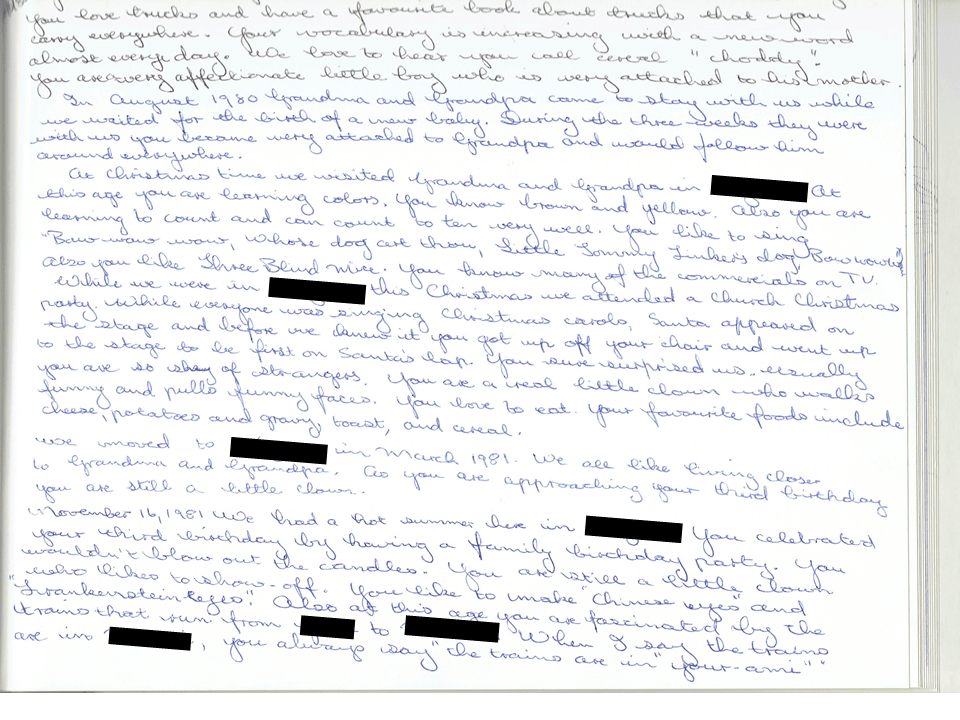 you love trucks and have a favourite book about trucks that you
carry everywhere. Your vocabulary is increasing with a new word
almost every day. We love to hear you call cereal "choddy".
You are a very affectionate little boy who is very attached to his mother.
In August 1980 Grandma and Grandpa came to stay with us while
we waited for the birth of a new baby. During the three weeks they were
with us you became very attached to Grandpa and would follow him
around everywhere.
At Christmas time we visited Grandma and Grandpa in At
this age you are learning colors. You know brown and yellow. Also you are
learning to count and can count to ten very well. You like to sing
"Bow-wow-wow, Whose dog art thou, Little Tommy Tinker's dog, Bow wow wow"
Also you like Three Blind Mice. You know many of the commercials on TV.
While we were in this Christmas we attended a Church Christmas
party. While everyone was singing Christmas carols, Santa appeared on
the stage and before we knew it you got up off your chair and went up
to the stage to be first on Santa's lap. You sure surprised us. usually
you are so shy of strangers. You are a real little clown who walks
funny and pulls funny faces. You love to eat. Your favourite foods include
cheese, potatoes and gravy, toast, and cereal.
We moved to in March 1981. We all like living closer
to Grandma and Grandpa. As you are approaching your third birthday
you are still a little clown.
November 16, 1981 We had a hot summer here in You celebrated
your third birthday by having a family birthday party. You
wouldn't blow out the candles. You are still a little clown
who likes to show-off. You like to make "Chinese eyes" and
"Frankenstein eyes". Also at this age you are fascinated by the
trains that run from to When I say the trains
are in , you always say "the trains are in "your-ami""